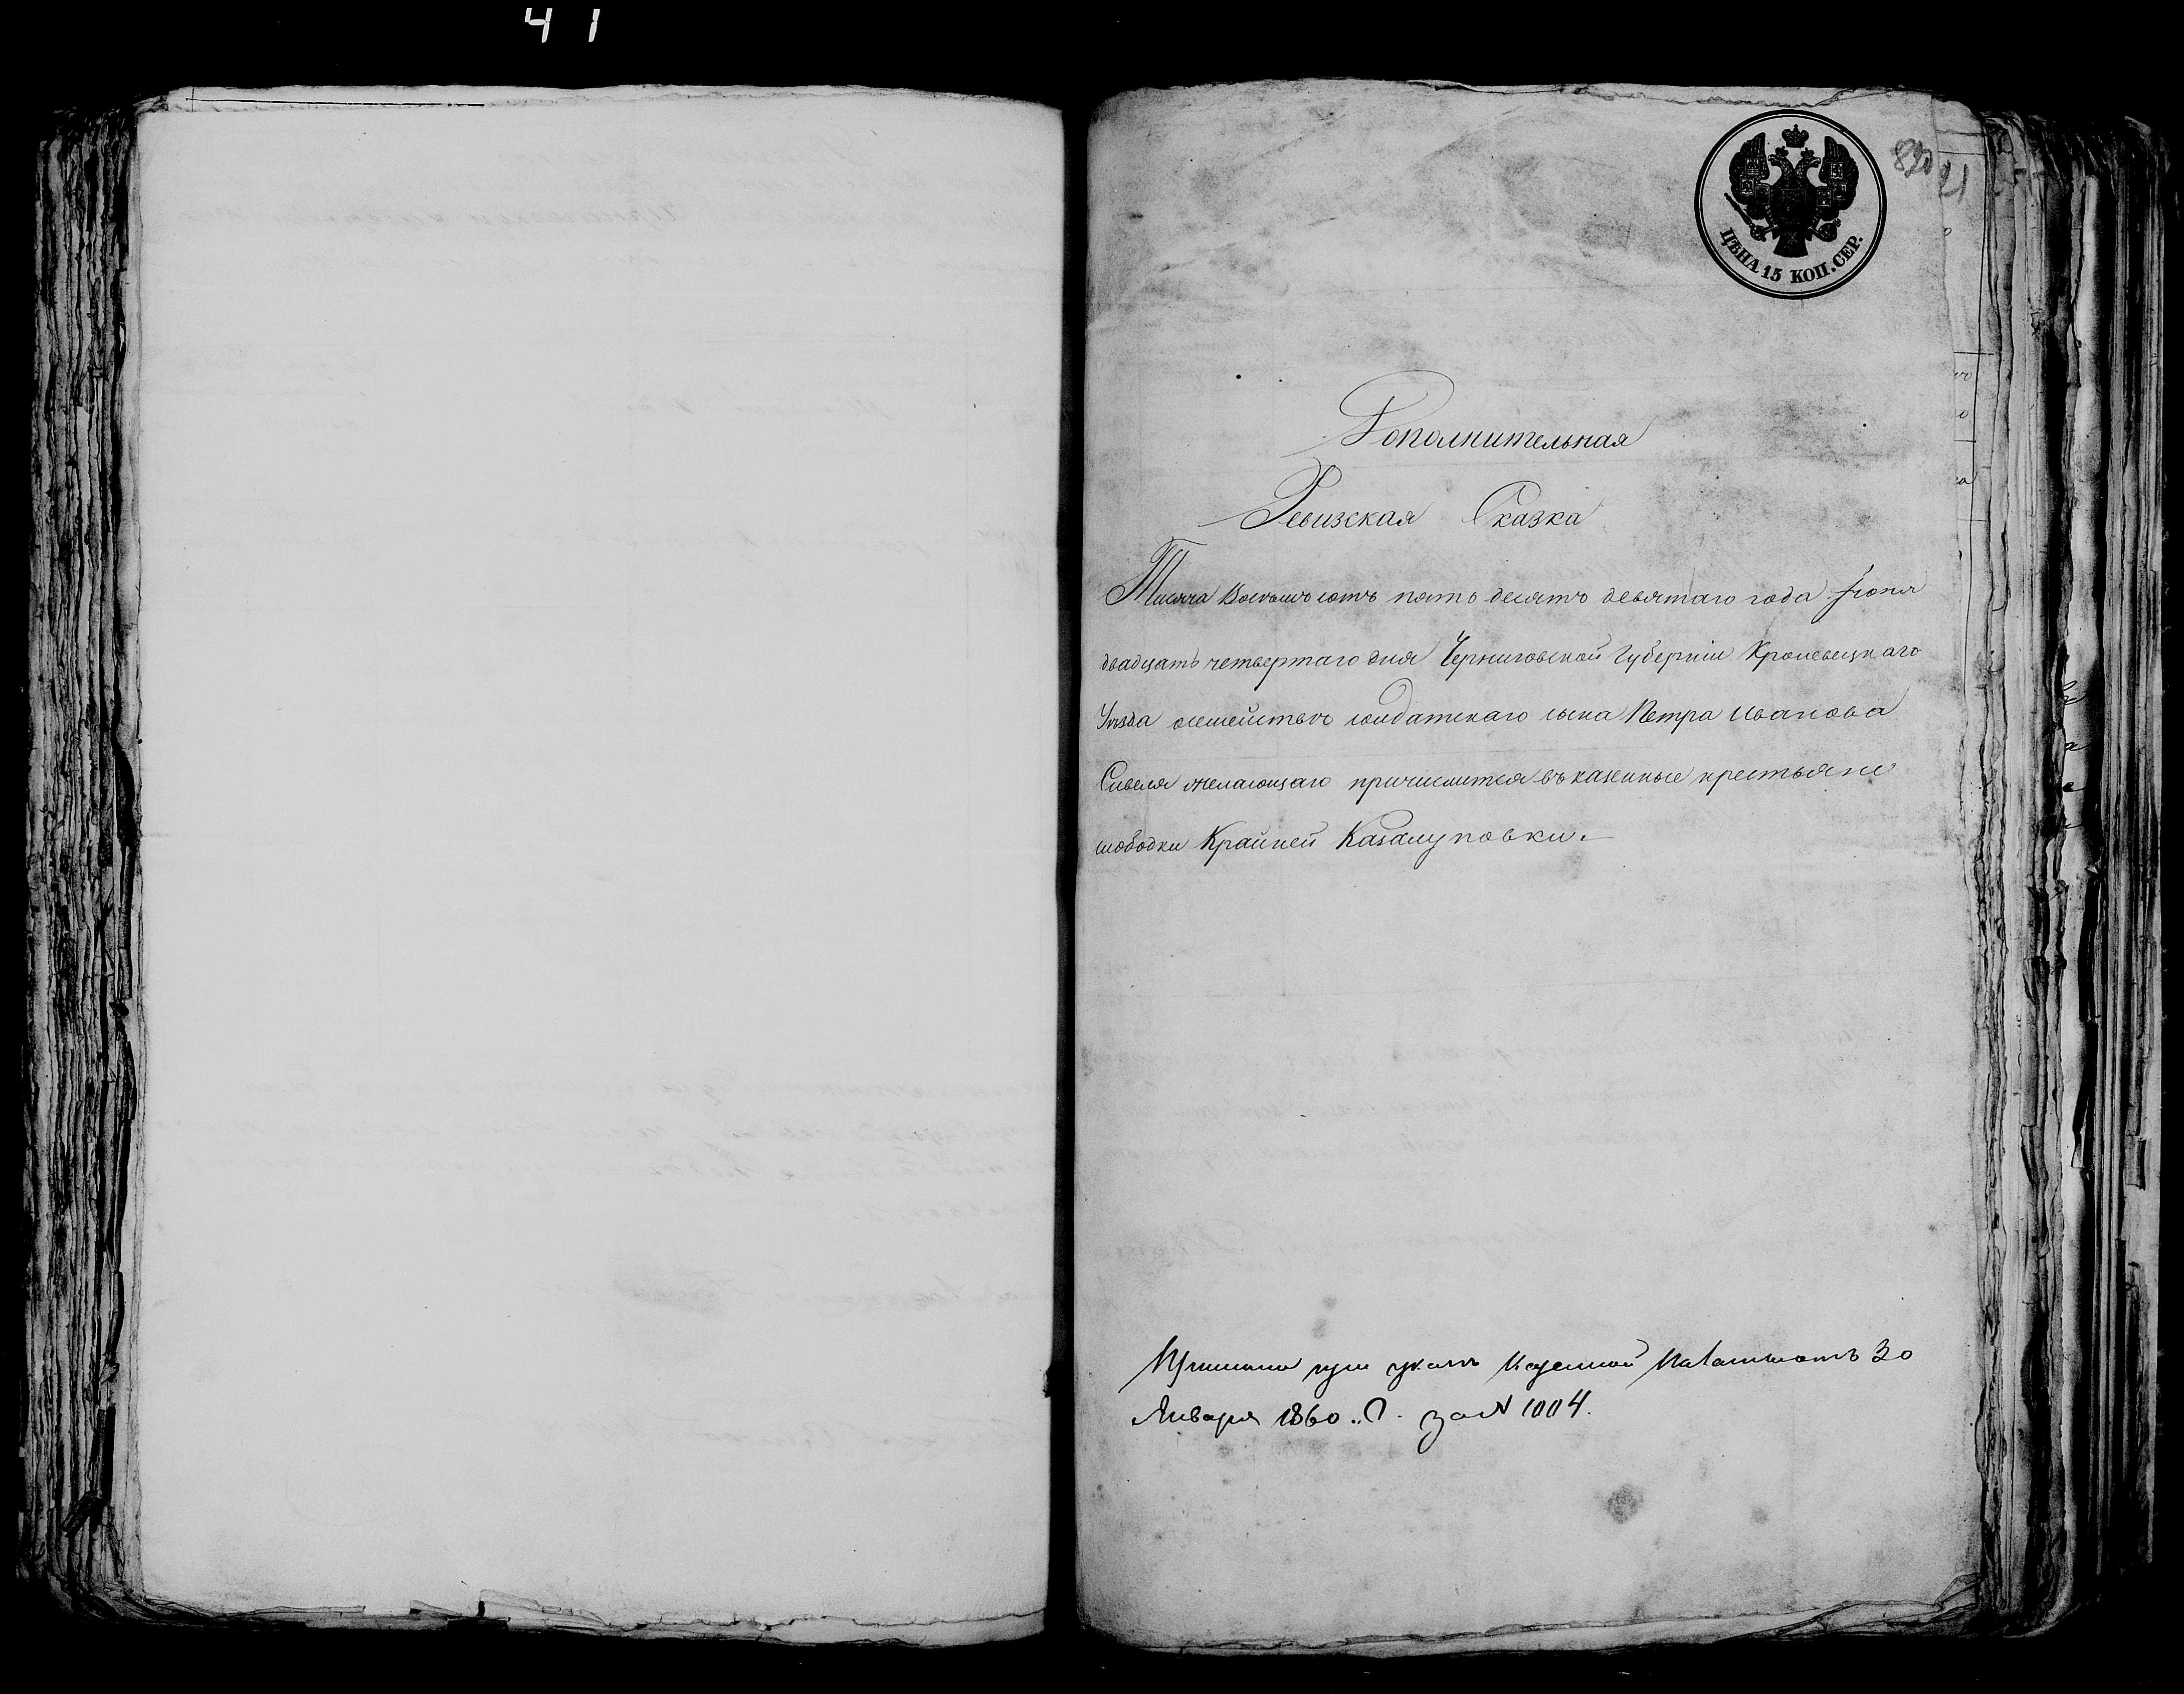 41
ЦѢНА 15 КОП. СЕР.
Дополнительная
Ревизская Сказка
Тисяча восемьсотъ пять десятъ девятаго года Іюня
двадцать четвертаго дня Черниговской Губерніи Кролевецкаго
Уѣзда осемействѣ солдатскаго сына Петра Иванова
Сивеля желающаго причислится въ казенные крестьяне
слободки Крайней Казалуповки.
при указѣ Казенной Палаты отъ 30
Января 1860 Г. за N 1004.